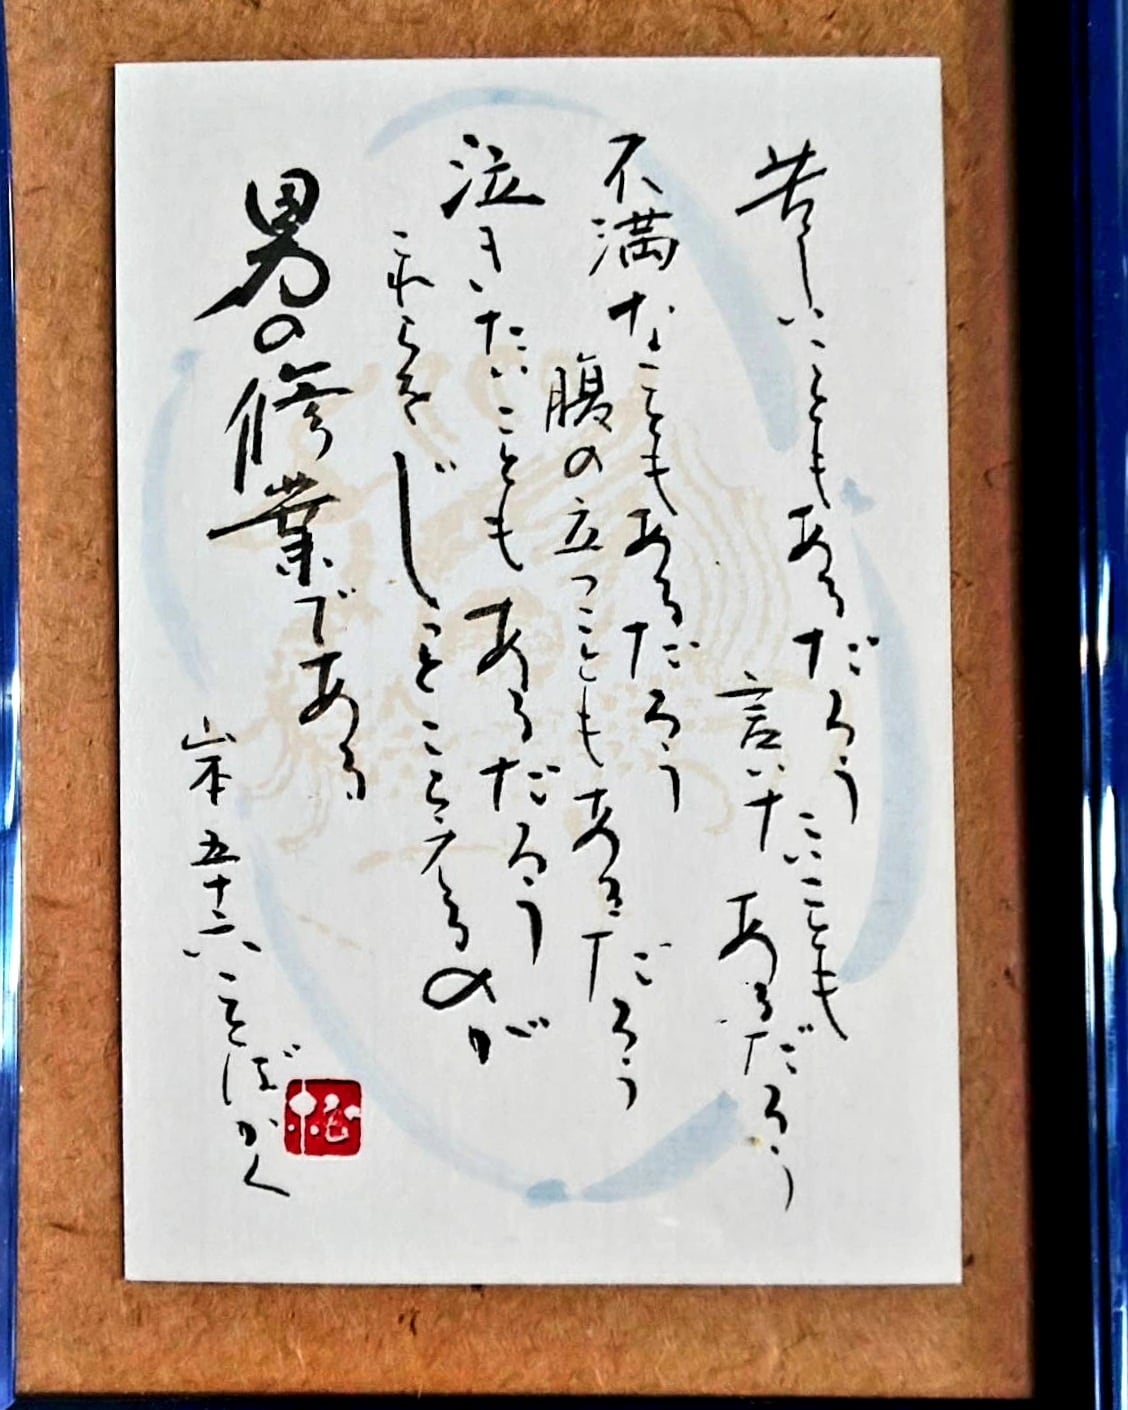 苦しいこともあるだろう
言いたいこともあるだろう
不満なこともあるだろう
腹の立つこともあるだろう
泣きたいこともあるだろう
これらをじことこらえるのが
男の修業である
山本五十六